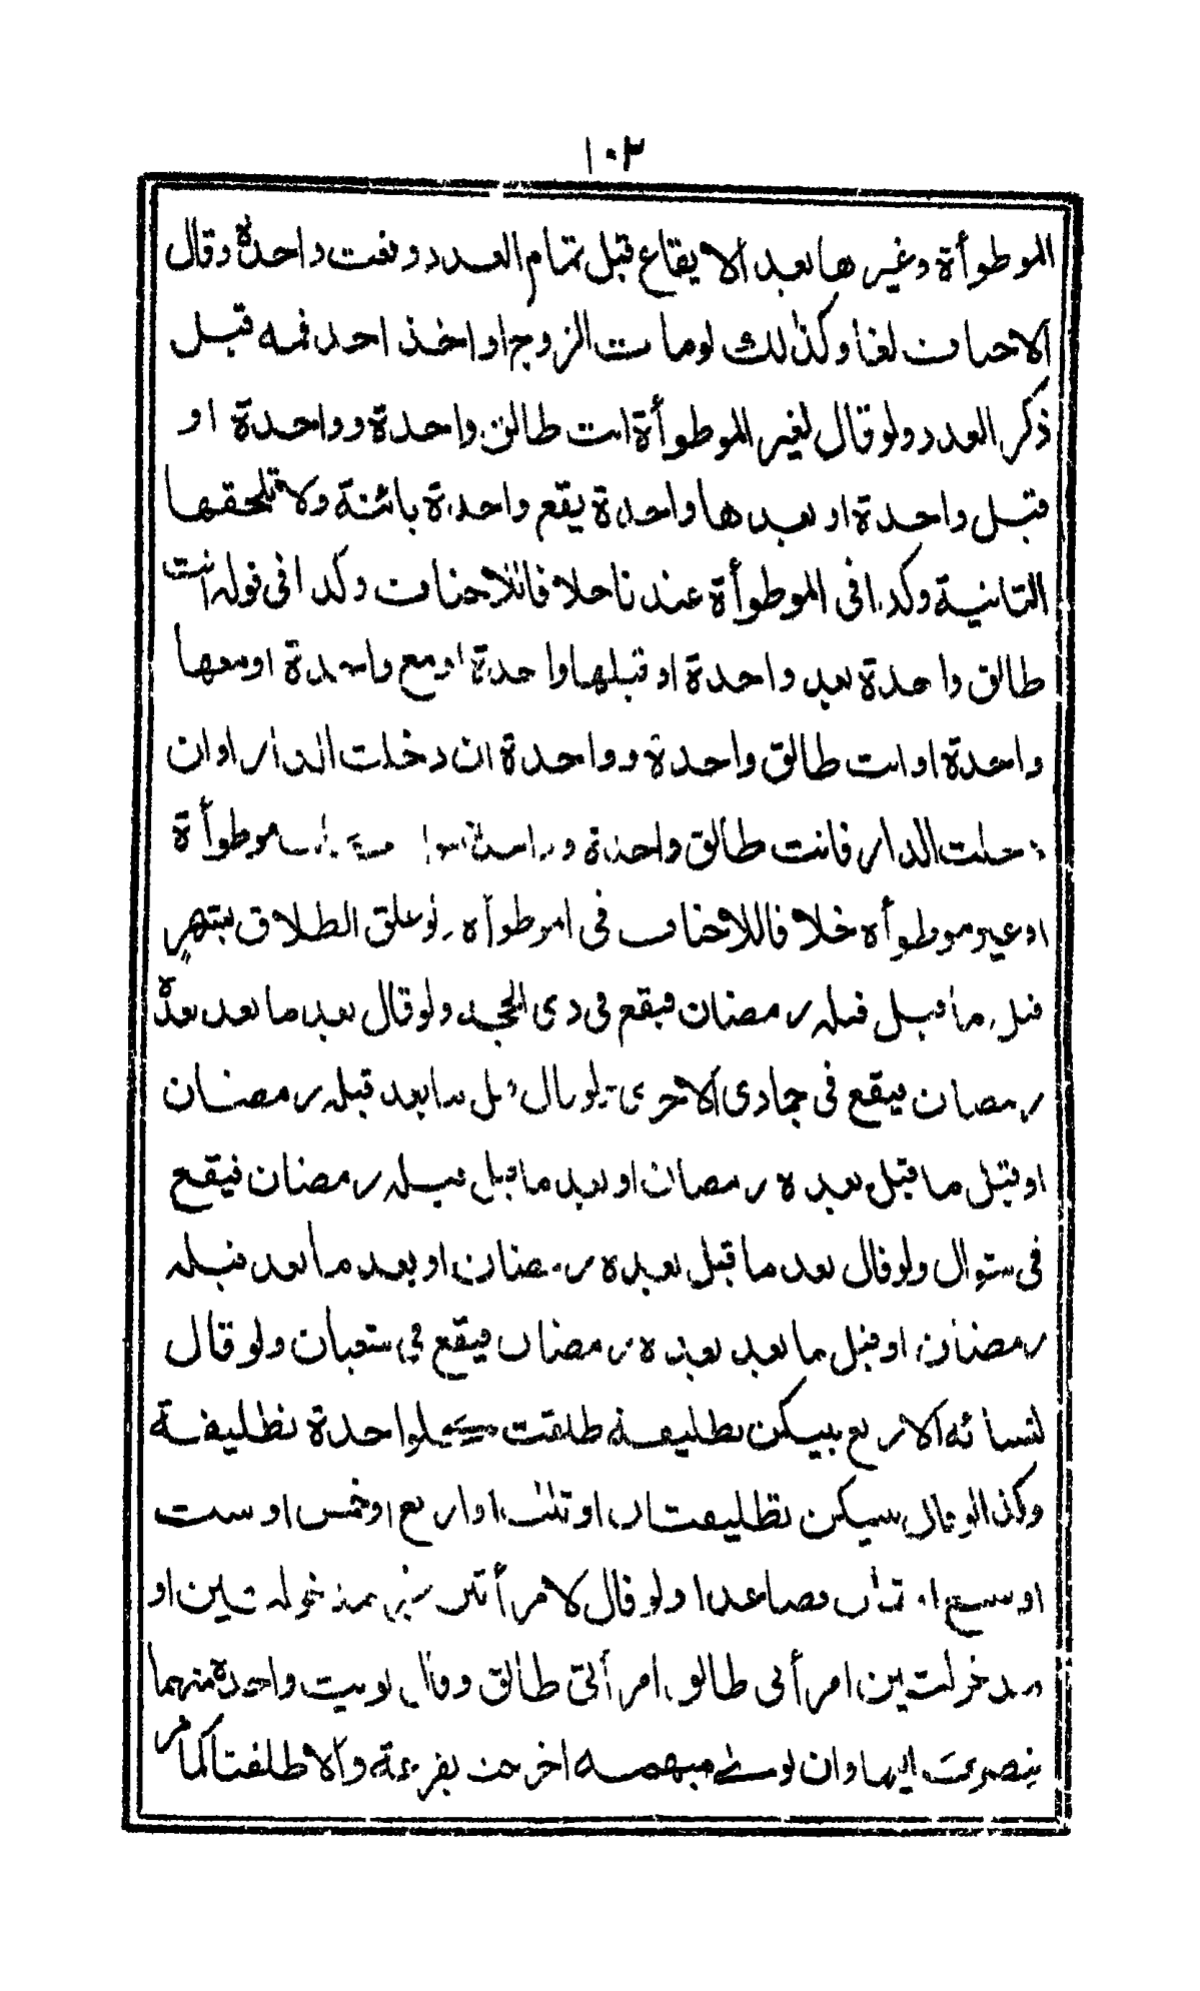 ١٠٣
الموطوأة وغيرها بعد الايقاع قبل تمام العدد وقعت واحدة وقال
الاحناف لغا وكذلك لو مات الزوج او اخذ احد فمه قبل
ذكر العدد ولو قال لغير الموطوأة انت طالق واحدة وواحدة او
قبل واحدة او بعدها واحدة يقع واحدة بائنة ولا تلحقها
الثانية وكذا فى الموطوأة عندنا خلافا للاحناف وكذا فى قوله انت
طالق واحدة بعد واحدة او قبلها واحدة او مع واحدة او معها
واحدة او انت طالق واحدة وواحدة ان دخلت الدار او ان
دخلت الدار فانت طالق واحدة وواحدة موطوأة
او غير موطوأة خلافا للاحناف فى الموطوأة ولو علق الطلاق بشهر
قبل ما قبل قبله رمضان فيقع فى ذى الحجة ولو قال بعد ما بعد بعده
رمضان فيقع فى جمادى الاخرى ولو قال قبل ما بعد قبله رمضان
او قبل ما قبل بعده رمضان او بعد ما قبل قبله رمضان فيقع
فى شوال ولو قال بعد ما قبل بعده رمضان او بعد ما بعد قبله
رمضان او قبل ما بعد بعده رمضان فيقع في شعبان ولو قال
لنسائه الاربع بينكن تطليقة طلقت كل واحدة تطليقة
وكذا لو قال بينكن تطليقتان او ثلث او اربع او خمس او ست
او سبع او ثمان فصاعدا ولو قال لامرأتين غير مدخولتين او
مدخولتين امرأتى طالق امرأتى طالق وقال نويت واحدة منهما
ينصرف اليها وان نوى مبهمة اخرجت بقرعة والا طلقتا كما مر